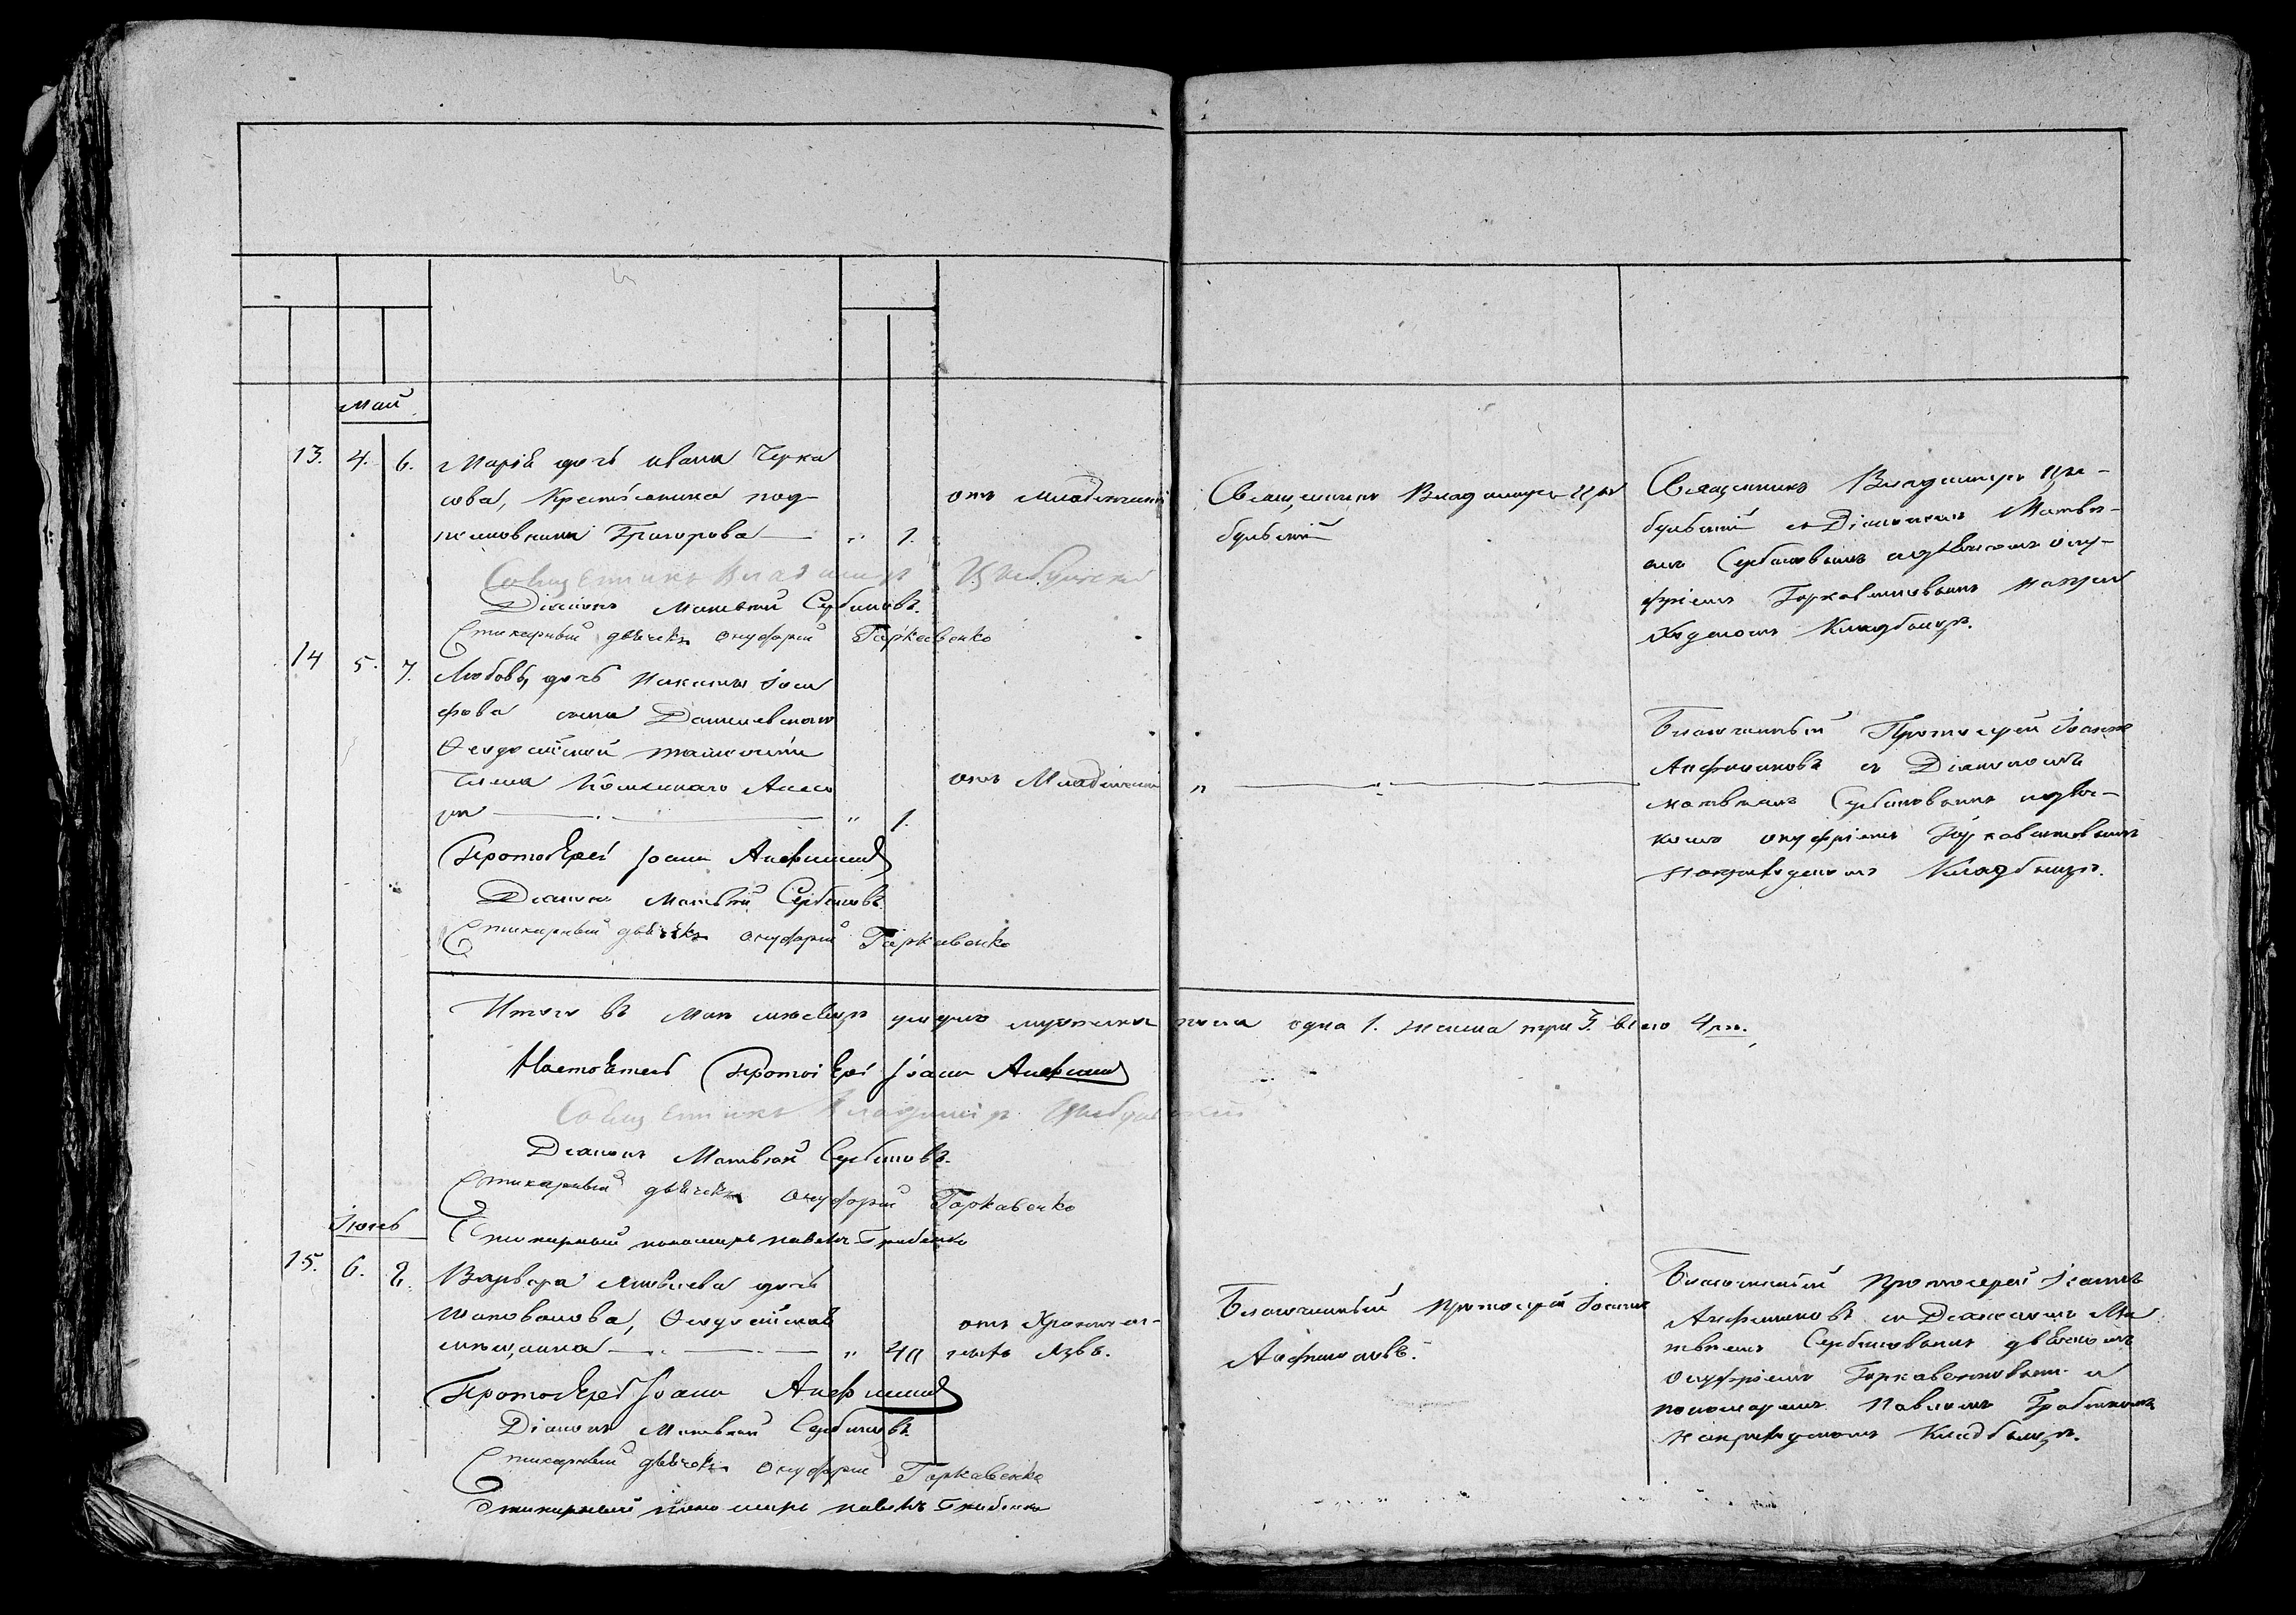 Май
13. 4. 6. Марія дочь ивана Черка
сова, Крестьянина под-
" 1.
отъ младенческой
Священникъ Владимиръ Цы
бульскій
Священникъ Владимиръ Цы-
бульскій съ Діакономъ Матвѣ-
емъ Сербиновымъ и дьячкомъ Ону-
фріемъ Горкавенковымъ на при
ходскомъ Кладбищѣ.
Священникъ Владимиръ Цыбульскій
Діаконъ Матвей Сербиновъ.
Стихарный дьячекъ Онуфрій Горкавенко
14 5. 7. Любовь, дочь Никиты Іоси
фова сына Данилевскаго
Феодосійской таможни
Члена Колежскаго Ассесо
ра " 1.
отъ Младенческой
"
Благочинный Протоіерей Іоаннъ
Анфимовъ съ Діакономъ
Матвеемъ Сербиновымъ и дьяч-
комъ онуфріемъ Горкавенковымъ
на приходскомъ Кладбищѣ.
Протоіерей Іоаннъ Анфимовъ
Діаконъ Матвей Сербиновъ
Стихарный дьячекъ онуфрій Горкавенко
Итого въ Маѣ месяцѣ умерло мужеска пола одна 1. женска три 3. всего 4ре.
Настоятель Протоіерей Іоаннъ Анфимовъ
Священникъ Владимиръ Цыбульскій
Діаконъ Матвей Сербиновъ.
Стихарный дьячекъ Онуфрій Горкавенко
Стихарный пономарь павелъ Грабенко
Іюнь
15. 6. 8. Варвара дочь
Шаповалова, Феодосійская
мещанка " 40
отъ Хрониче-
ской Язвы.
Благочинный протоіерей Іоаннъ
Анфимовъ.
Благочинный протоіерей Іоаннъ
Анфимовъ съ Діакономъ Ма
твеемъ Сербиновымъ дьячкомъ
Онуфріемъ Горкавенковымъ и
пономаремъ Павломъ Грабенкомъ
на приходскомъ Кладбищѣ.
Протоіерей Іоаннъ Анфимовъ
Діаконъ Матвей Сербиновъ
Стихарный дьячекъ онуфрій Горкавенко
Стихарный пономарь павелъ Грабенко